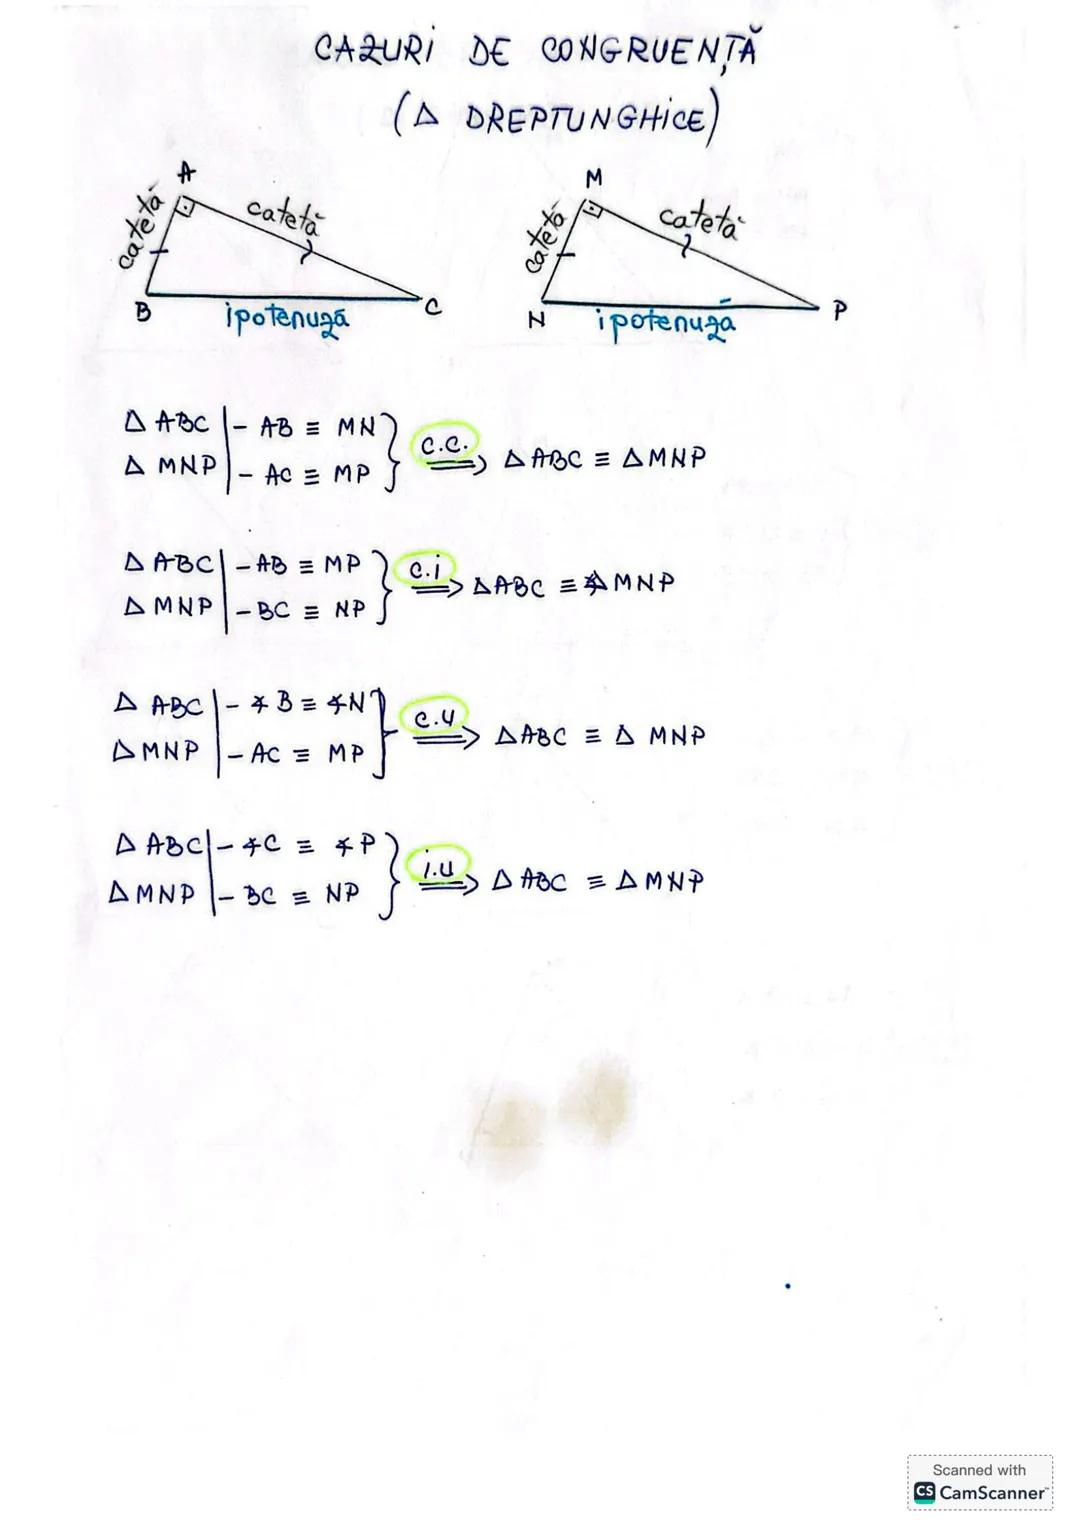 CAZURI DE CONGRUENȚĂ
(Δ DREPTUNGHICE)
A
catetă
catetă
B
ipotenuză
C
M
catetă
catetă
N
ipotenuza
P
Δ ABC | - AB ≡ MN
Δ MNP | - AC ≡ MP } c.c. ⟹ Δ ABC ≡ Δ MNP
Δ ABC | - AB ≡ MP
Δ MNP | - BC ≡ NP } c.i ⟹ Δ ABC ≡ Δ MNP
Δ ABC | - ∢ B ≡ ∢ N
Δ MNP | - AC ≡ MP } c.u ⟹ Δ ABC ≡ Δ MNP
Δ ABC | - ∢ C ≡ ∢ P
Δ MNP | - BC ≡ NP } i.u ⟹ Δ ABC ≡ Δ MNP
Scanned with
CS CamScanner